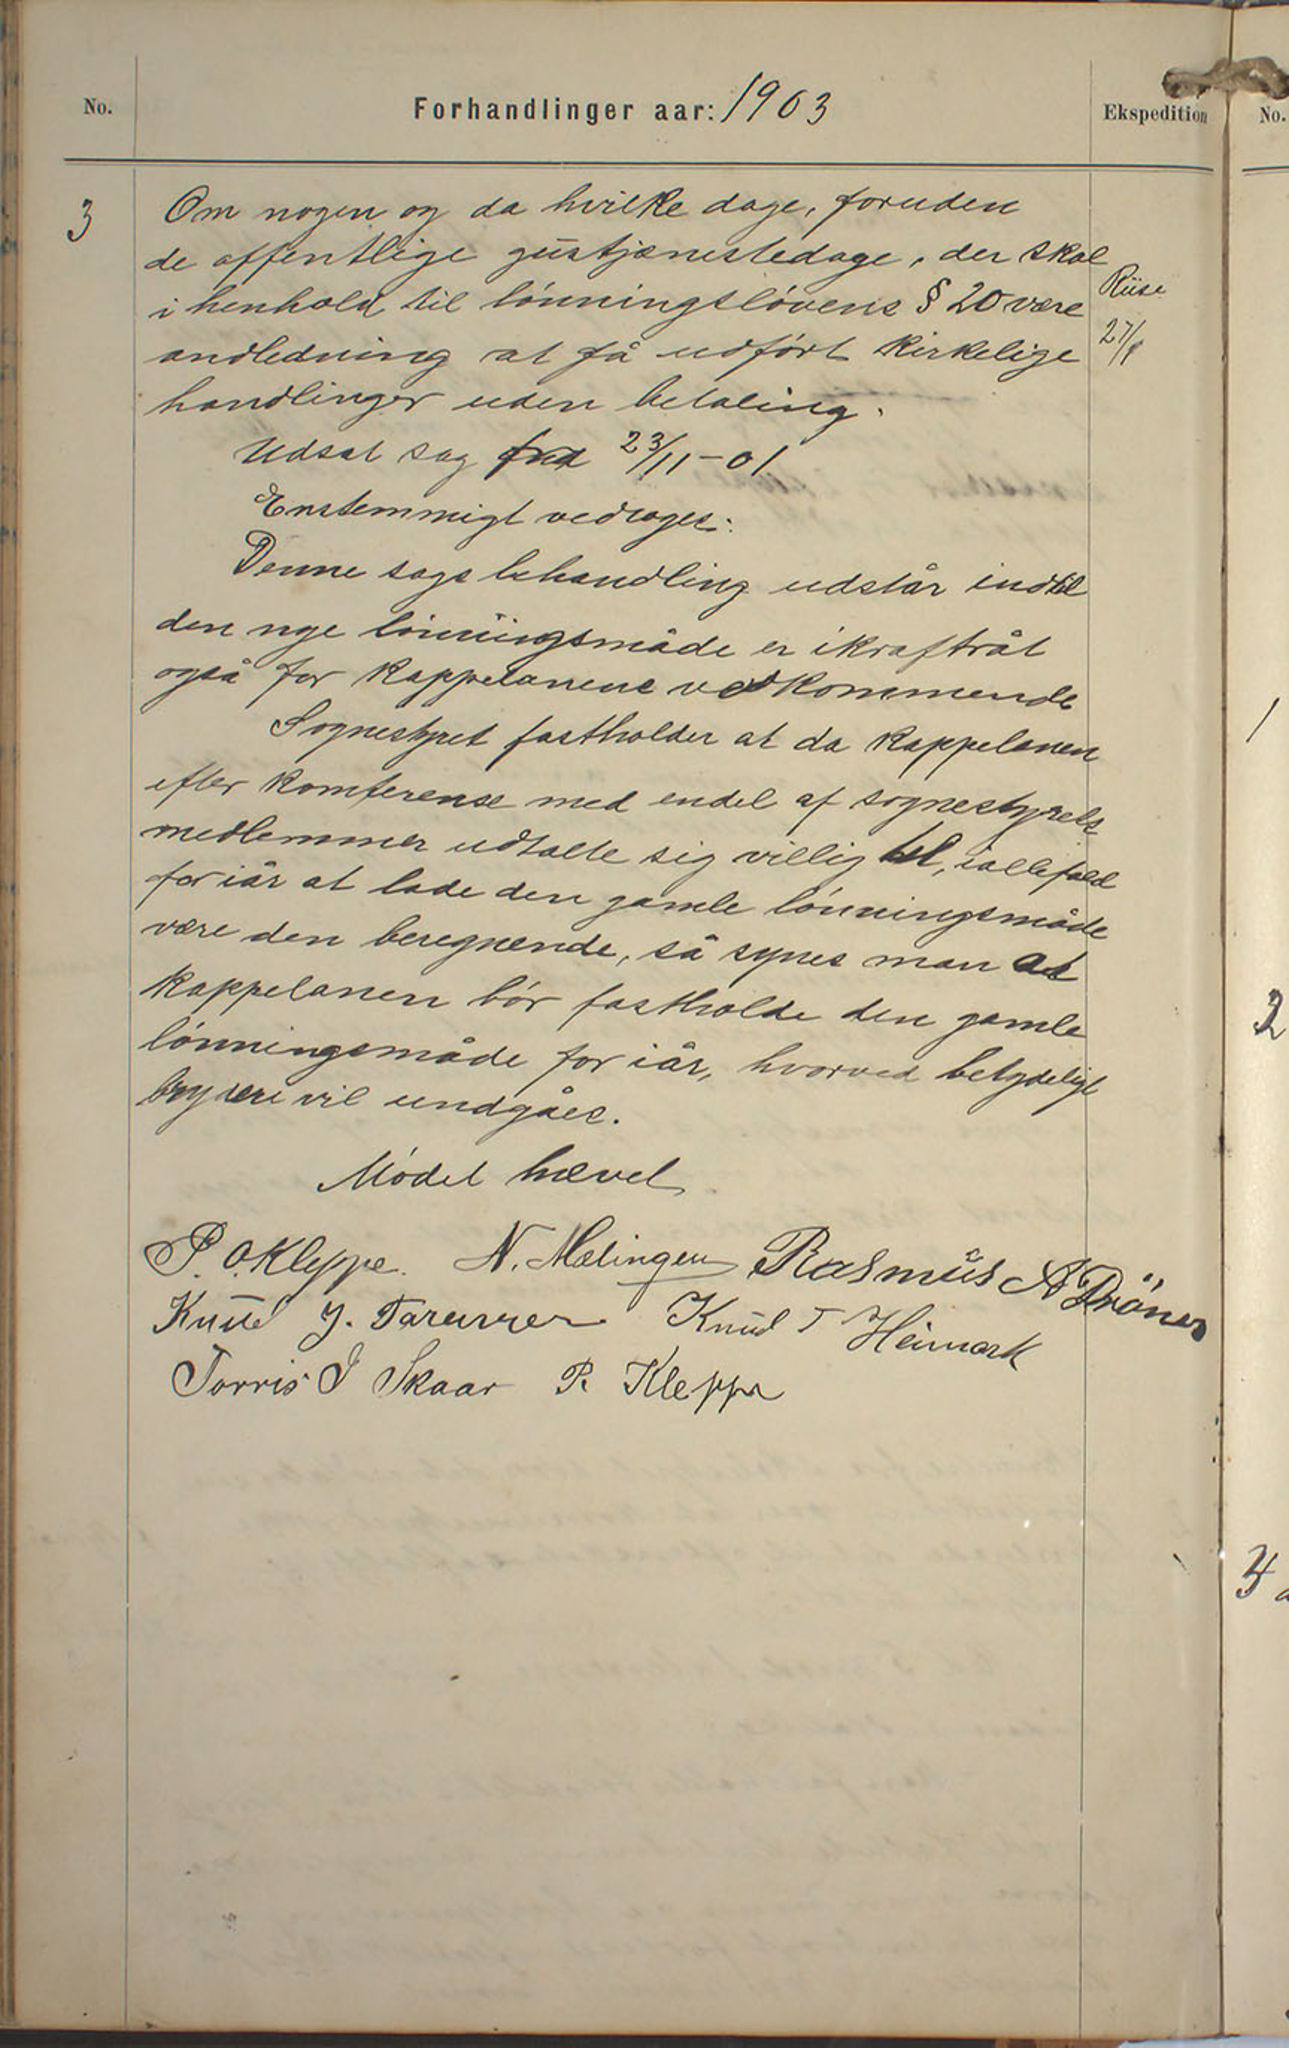 No. Forhandlinger aar: 1903 Ekspedition No.
3 Om nogen og da hvilke dage, foruden
de offentlige gustjænestedage, der skal
i henhold til lönningslövens § 20 være
andledning at få udfört kirkelige
handlinger uden betaling.
Riise
27/8
Udsat sag fra 23/11-01
Enstemmigt vedtoges:
Denne sags behandling udstår indtil
den nye lönningsmåde er ikraftråt
også for kappelanens vedkommende
Sognestyret fastholder at da kappelanen
efter komferense med endel af sognestyrets
medlemmer udtalte sig villig til, iallefald
for iår at lade den gamle lönningsmåde
være den beregnende, så synes man at
kappelanen bör fastholde den gamle
lönningsmåde for iår, hvorved betydeligt
bryderi vil undgåes.
Mödet hævet
P. O. Kleppe. N. Mælingen Rasmus A Drönen
Knud J. Knud T Heimark
Torris J Skaar P. Kleppe
1
2
3